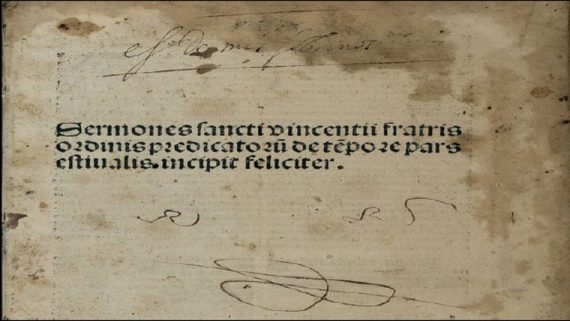 Sermones sancti vincentii fratris
ordinis predicatorū de tēpore pars
estiualis. incipit feliciter.